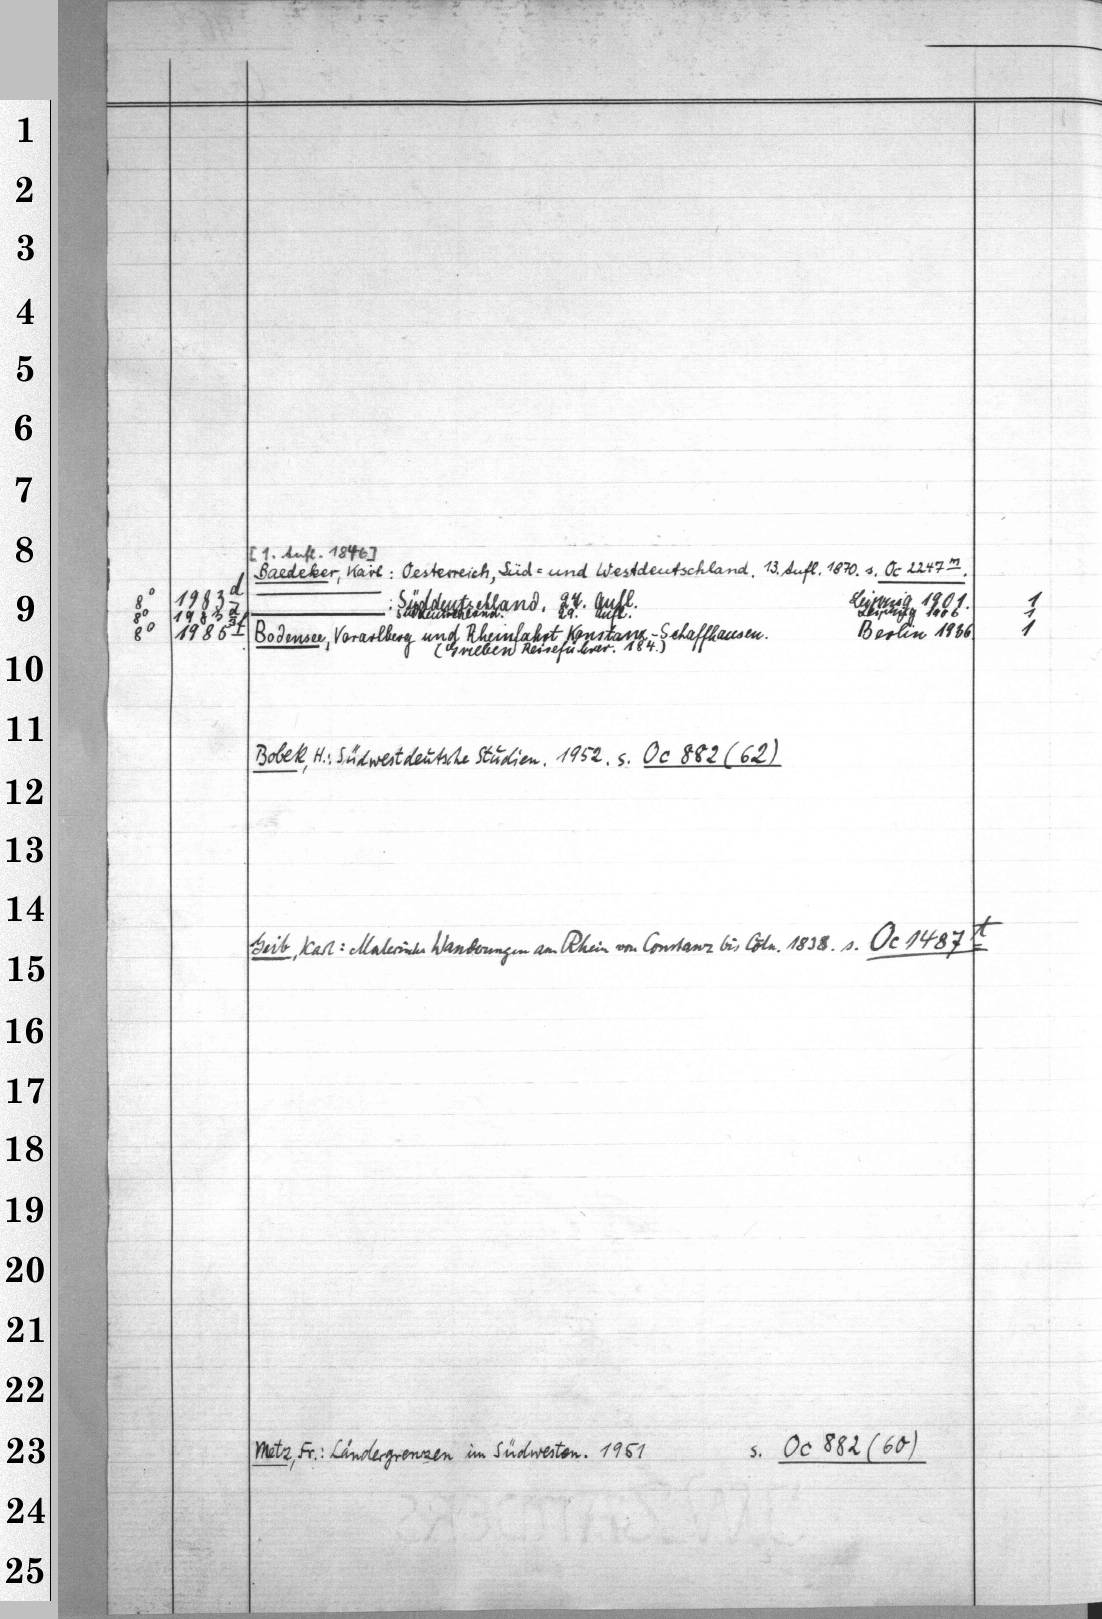 1
2
3
4
5
6
7
8
[1. Aufl. 1846]
Baedeker, Karl: Oesterreich, Süd= und Westdeutschland. 13. Aufl. 1870. s. Oc 2247 m.
9
8° 1983 d : Süddeutschland. 27. Aufl. Leipzig 1901. 1
8° 1983 Süddeutschland. 29. Aufl. Leipzig 1
8° 1985 Bodensee, Vorarlberg und Rheinfahrt Konstanz-Schaffhausen. Berlin 1936 1
(Grieben Reiseführer. 184.)
10
11
Bobek, H.: Südwestdeutsche Studien. 1952. s. Oc 882 (62)
12
13
14
Geib, Karl: Malerische Wanderungen am Rhein von Constanz bis Cöln. 1838. s. Oc 1487 t
15
16
17
18
19
20
21
22
23
Metz, Fr.: Ländergrenzen im Südwesten. 1951 s. Oc 882 (60)
24
25